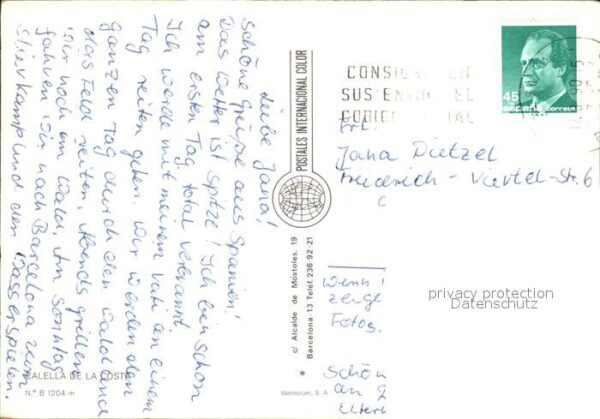 Liebe Jana!
Schöne Grüße aus Spanien!
Das Wetter ist Spitze! Ich bin schon
am ersten Tag total verbrannt.
Ich werde mit meinem Vati an einem
Tag reiten gehen. Wir werden den
ganzen Tag durch den Wald und
das Feld reiten. Abends grillen
wir noch am Wald. Am Sonntag
fahren wir nach Barcelona zum
Stierkampf und den Wasserspielen.
CALELLA DE LA COSTA
N.º B 1204 m
POSTALES INTERNACIONAL COLOR
c/ Alcalde de Móstoles, 19
Barcelona-13 Telef. 236-92-21
Werlisium, S. A.
CONSIGNE EN
SUS ENVIOS EL
CODIGO POSTAL
45
españa correos
Frl.
Jana Dietzel
Friederich-Viertel-Str. 6
wenn
zeige
Fotos.
Schön
an
Eltern
privacy protection
Datenschutz